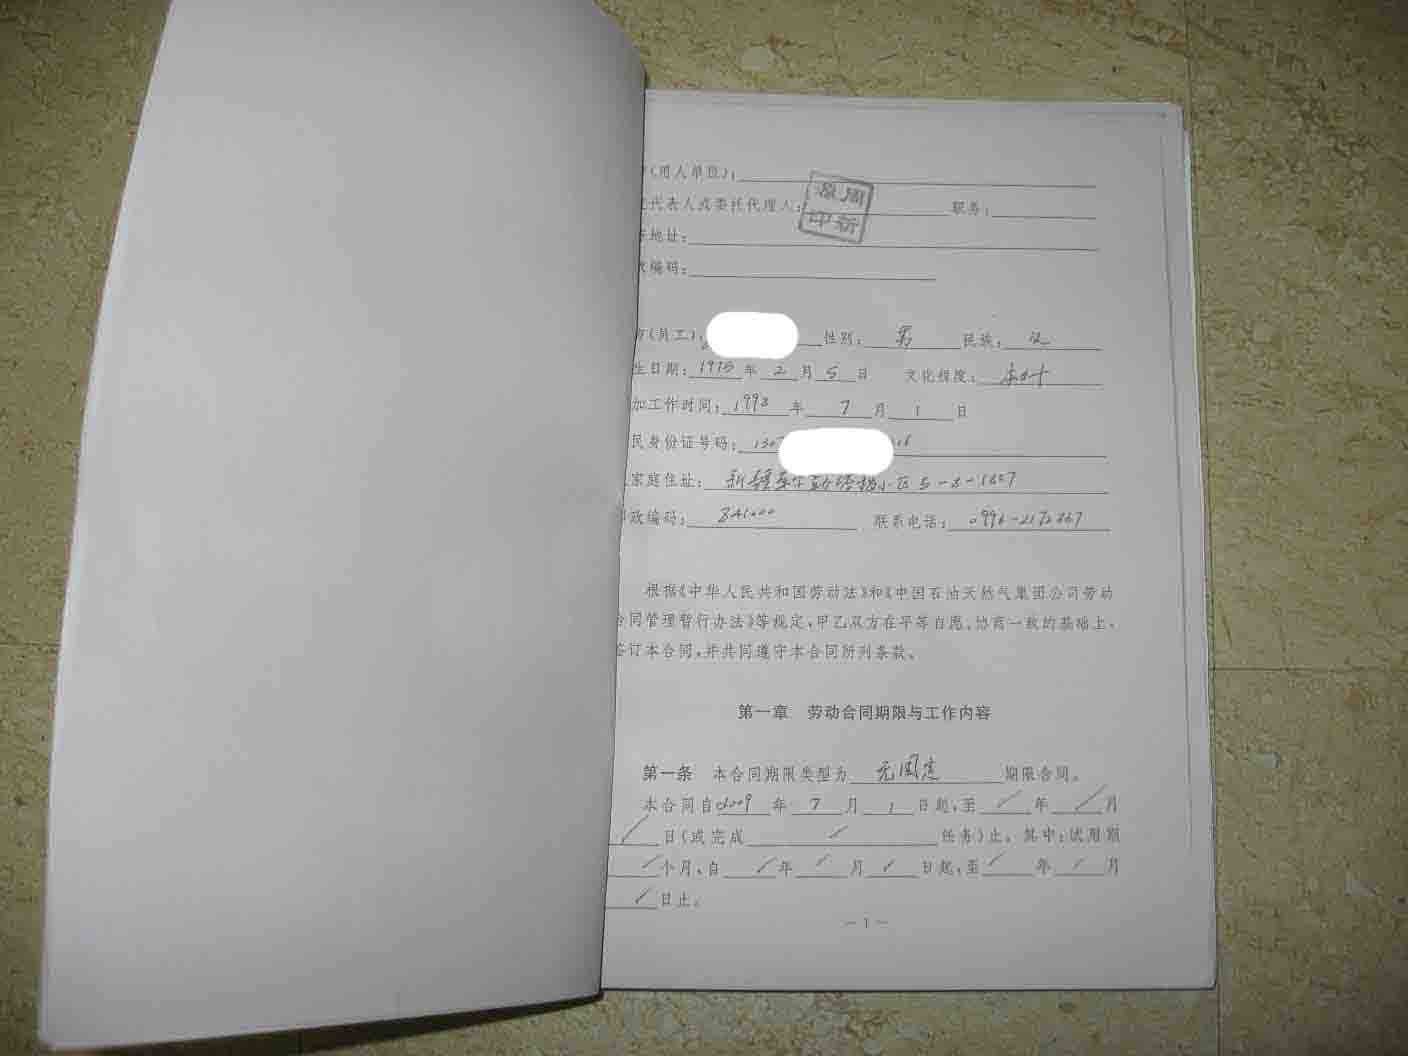 (用人单位):
代表人或委托代理人: 职务:
源周
印新
地址:
编码:
(员工): 性别: 男 民族: 汉
生日期: 1975 年 2 月 5 日 文化程度:
加工作时间: 1998 年 7 月 1 日
民身份证号码: 1307 16
家庭住址: 新疆 小区5-8-1607
邮政编码: 841000 联系电话: 0996-2172867
根据《中华人民共和国劳动法》和《中国石油天然气集团公司劳动
合同管理暂行办法》等规定,甲乙双方在平等自愿、协商一致的基础上,
签订本合同,并共同遵守本合同所列条款。
第一章 劳动合同期限与工作内容
第一条 本合同期限类型为 无固定 期限合同。
本合同自 2009 年 7 月 1 日起,至 / 年 / 月
/ 日(或完成 / 任务)止。其中:试用期
/ 个月,自 / 年 / 月 / 日起,至 / 年 / 月
/ 日止。
— 1 —